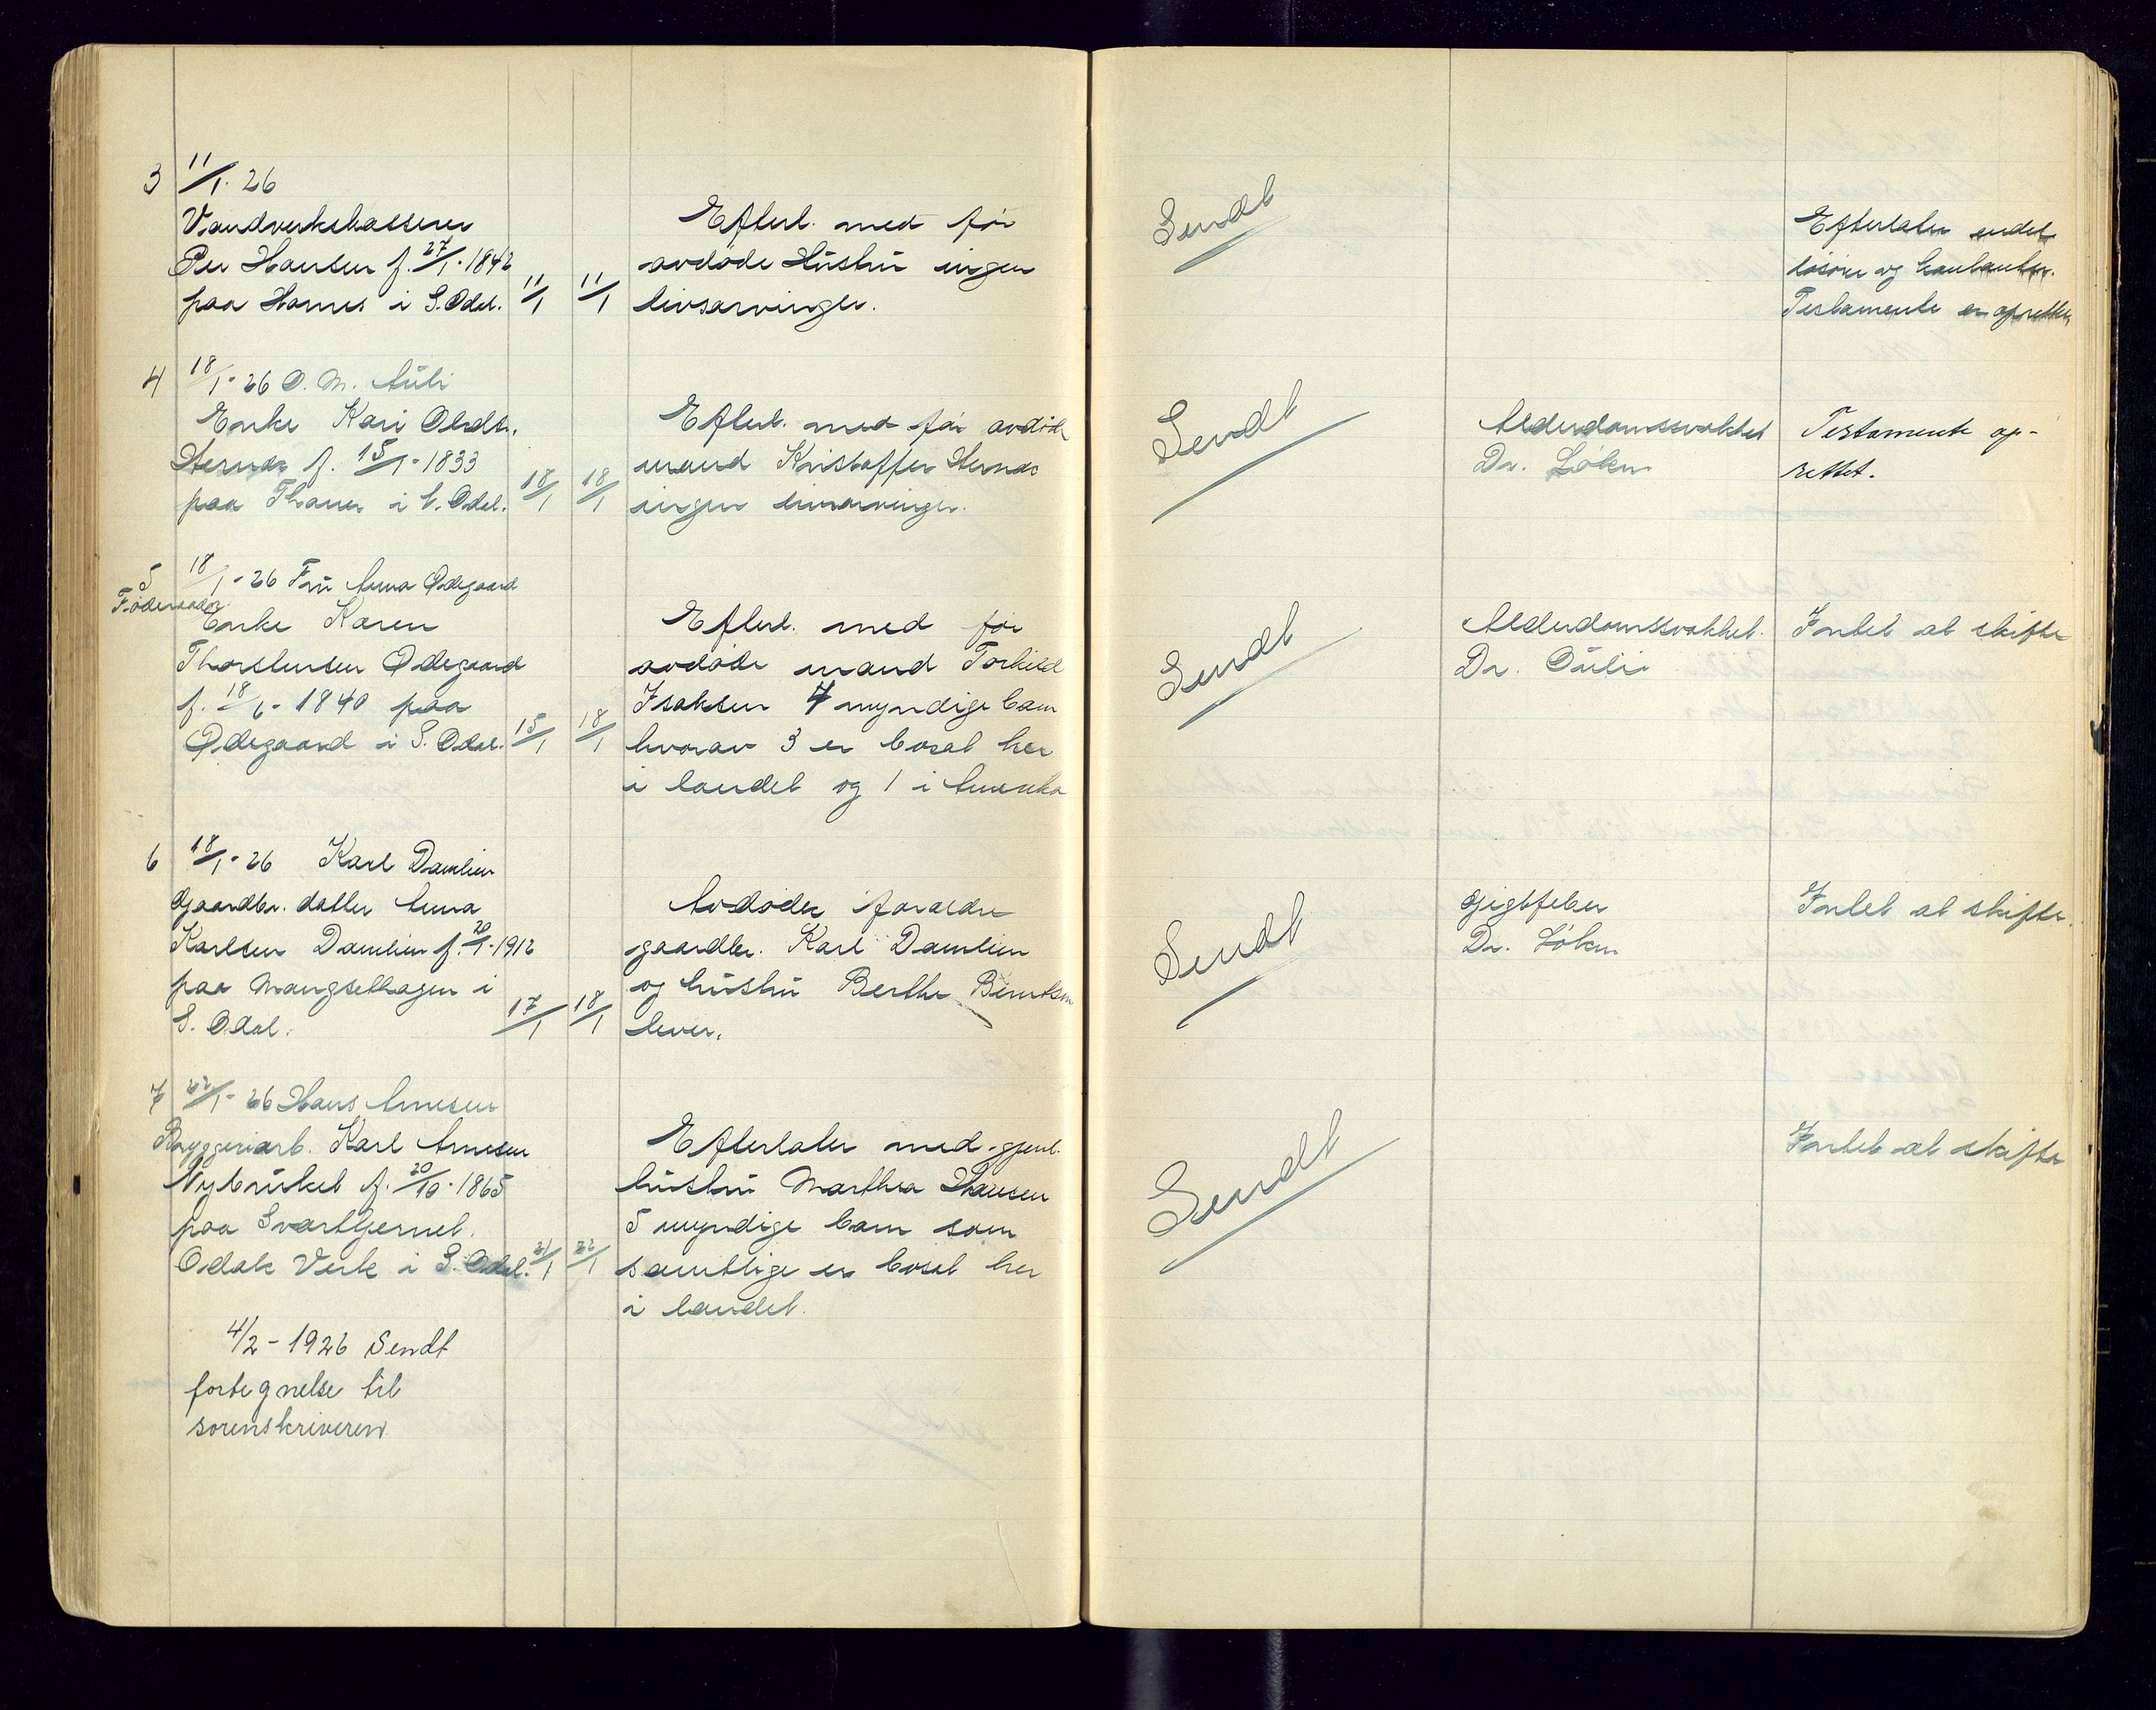 3 11/1. 26
Vandverkskasserer
Per Hansen f. 27/1. 1842
paa Hornes i S. Odal. 11/1 11/1
Efterl. med før
avdøde Hustru ingen
livsarvinger.
Sendt
Efterlater endel
løsøre og
Testamente er oprettet
4 18/1. 26 O. M. Auli
Enke Kari Olsdtr.
f. 15/1. 1833
paa i V. Odal. 18/1 18/1
Efterl. med før avdøde
mand Kristoffer
ingen livsarvinger.
Sendt
Alderdomssvakhet
Dr. Løken
Testamente op-
rettet.
5 18/1. 26 Fru Anna Ødegaard
Føderaads
Enke Karen
Thorstensen Ødegaard
f. 18/6. 1840 paa
Ødegaard i S. Odal. 15/1 18/1
Efterl. med før
avdøde mand Torkild
Isaksen 4 myndige barn
hvorav 3 er bosat her
i landet og 1 i Amerika
Sendt
Alderdomssvakhet.
Dr.
Intet at skifte
6 18/1. 26 Karl Damlien
Gaardbr. datter Anna
Karlsen Damlien f. 20/1. 1912
paa Mangsethagen i
S. Odal. 17/1 18/1
Avdødes forældre
gaardbr. Karl Damlien
og hustru Berthe Berntsen
lever.
Sendt
Gigtfeber
Dr. Løken
Intet at skifte.
7 22/1. 26 Hans Arnesen
Bryggeriarb. Karl Arnesen
Nybruket f. 20/10. 1865
paa Svarttjernet.
Odals Verk i S. Odal. 21/1 22/1
Efterlater med gjenl.
hustru Marthea Hansen
5 myndige barn som
samtlige er bosat her
i landet.
Sendt
Intet at skifte
4/2 - 1926 Sendt
fortegnelse til
sorenskriveren